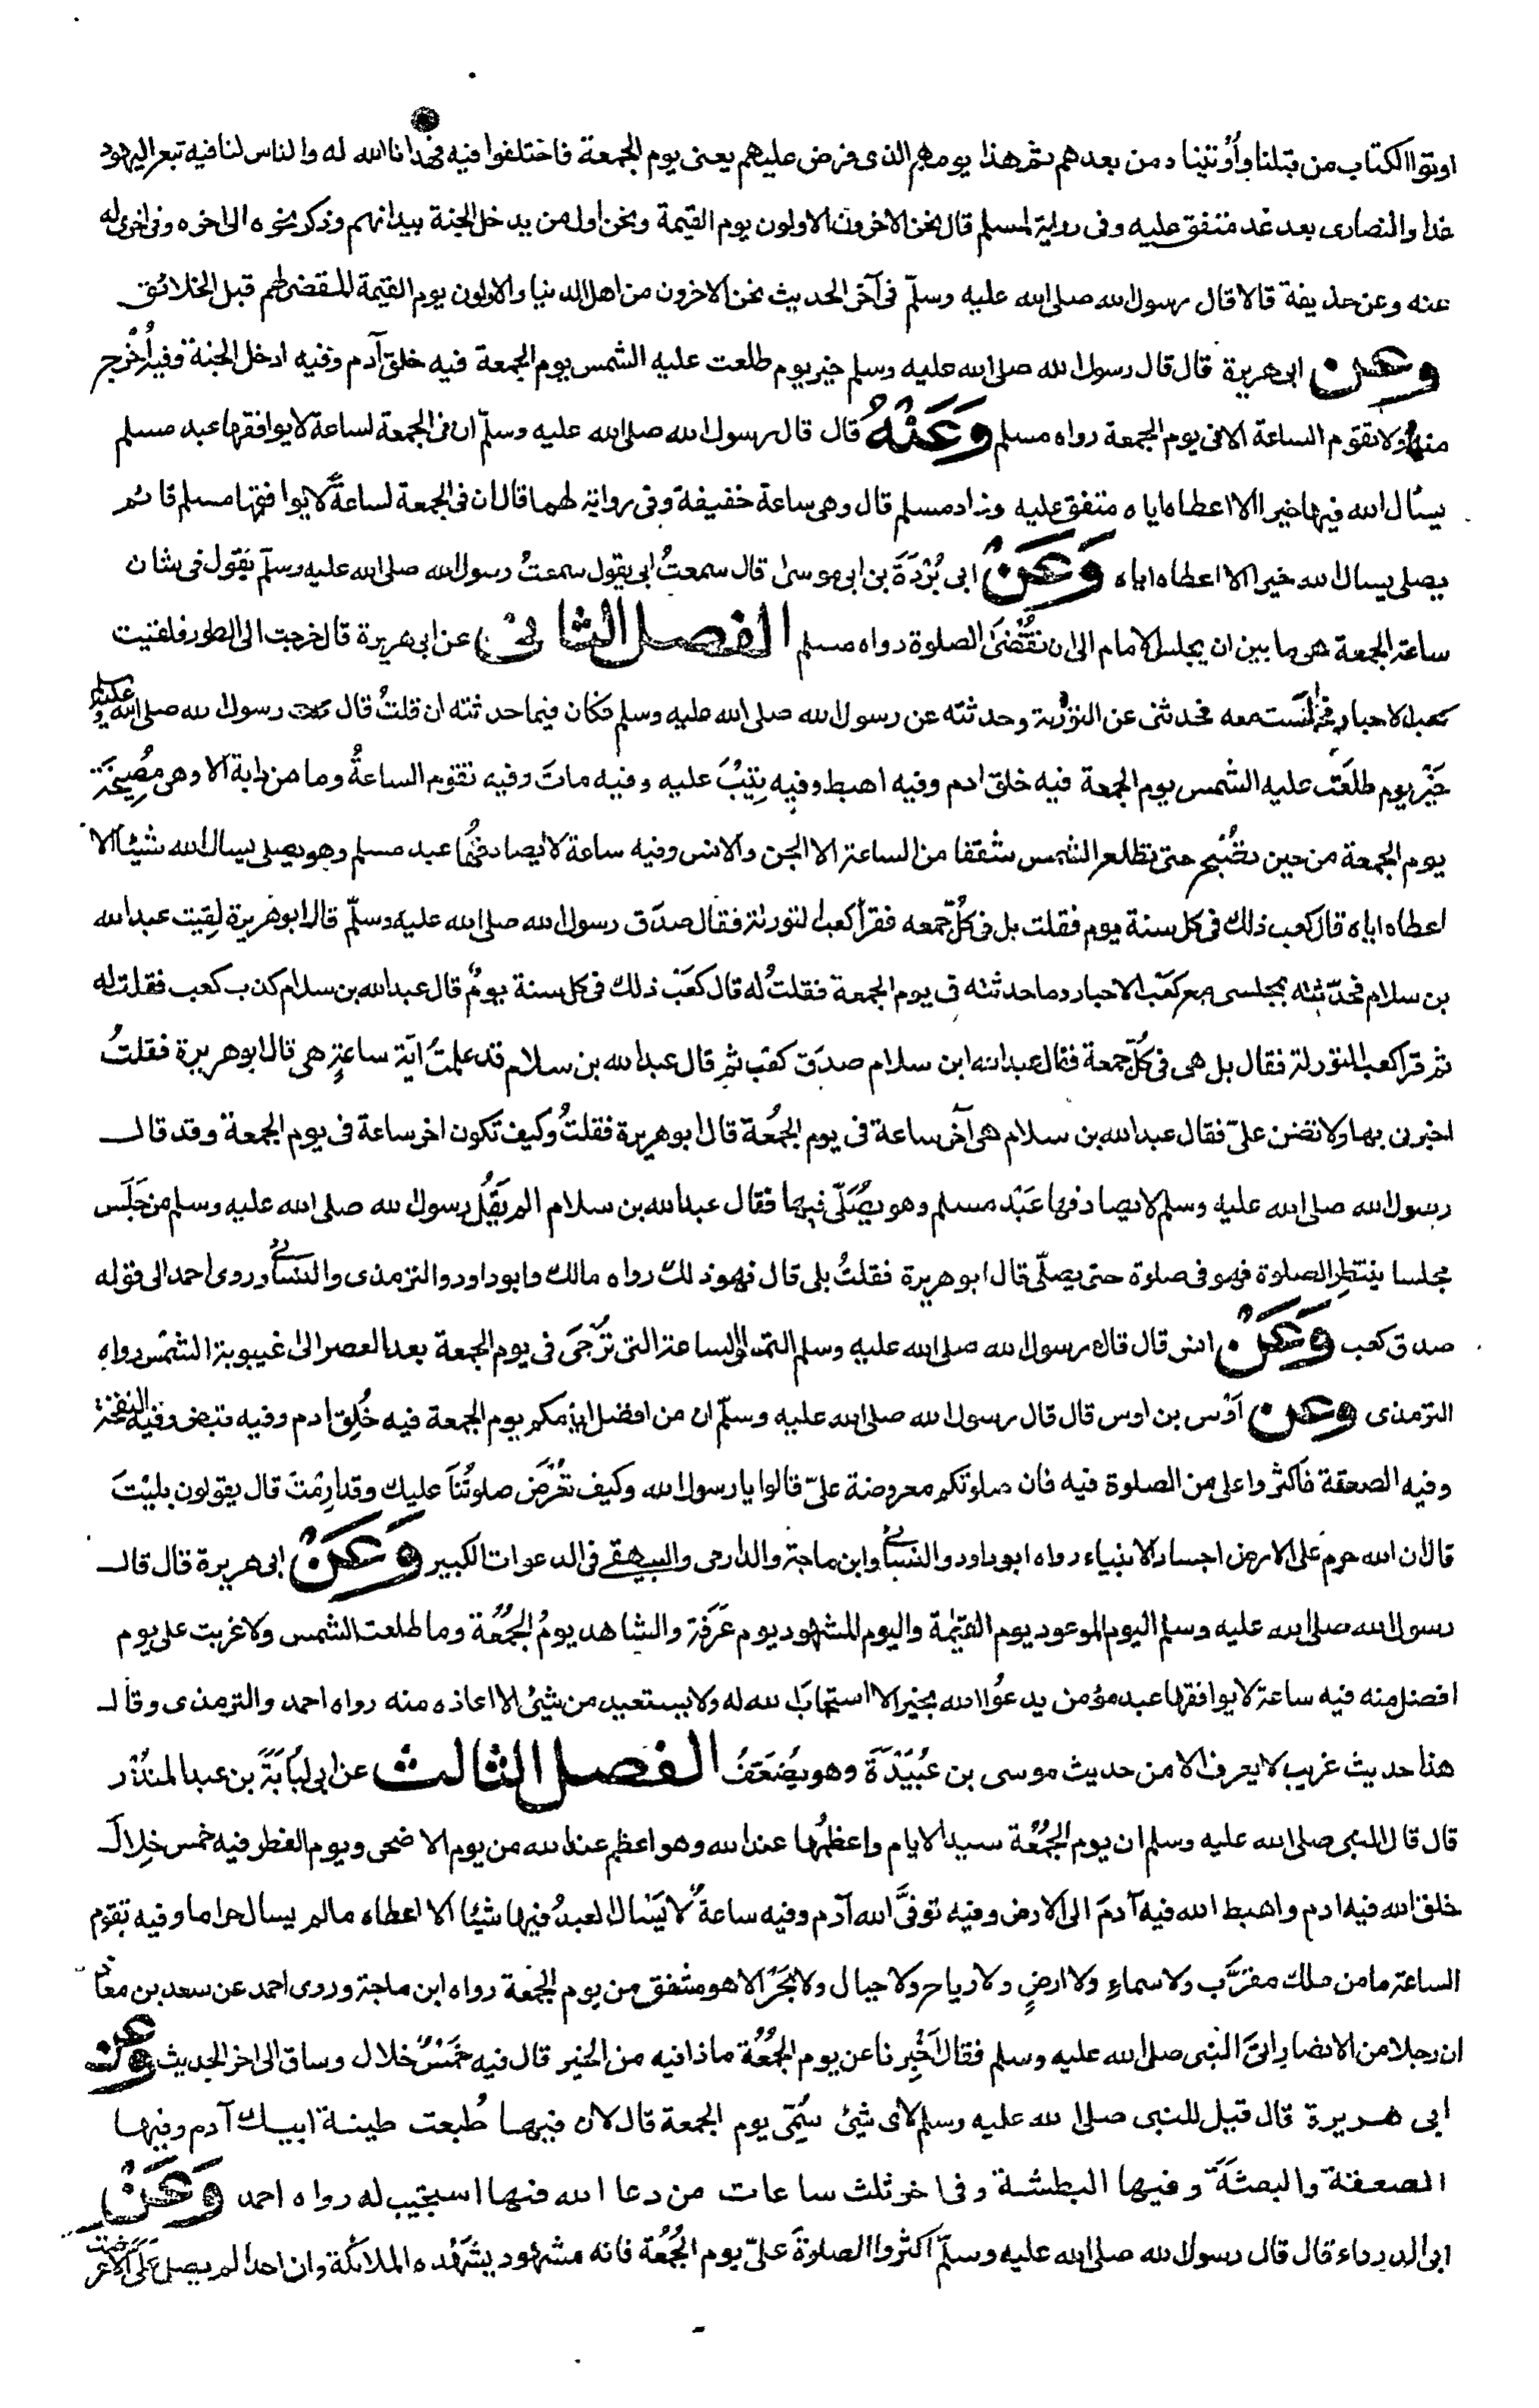 اوتوا الكتاب من قبلنا وأوتينا ه من بعدهم ثم هذا يومهم الذى فرض عليهم يعنى يوم الجمعة فاختلفوا فيه فهدانا الله له والناس لنا فيه تبع اليهود
غدا والنصارى بعد غد متفق عليه وفى رواية لمسلم قال نحن الاخرون الاولون يوم القيمة ونحن اول من يدخل الجنة بيد انهم وذكر نحوه الى اخره وفى اخرى له
عنه وعن حذيفة قالا قال رسول الله صلى الله عليه وسلّم فى آخر الحديث نحن الاخرون من اهل الدنيا والاولون يوم القيمة المقضى لهم قبل الخلائق
وعن ابى هريرة قال قال رسول الله صلى الله عليه وسلم خير يوم طلعت عليه الشمس يوم الجمعة فيه خلق آدم وفيه ادخل الجنة وفيه أُخْرِج
منها ولا تقوم الساعة الا فى يوم الجمعة رواه مسلم وَعَنْهُ قال قال رسول الله صلى الله عليه وسلّم ان فى الجمعة لساعة لا يوافقها عبد مسلم
يسأل الله فيها خيرا الا اعطاه اياه متفق عليه وزاد مسلم قال وهى ساعة خفيفة وفى رواية لهما قال ان فى الجمعة لساعةً لا يوافقها مسلم قائم
يصلى يسال الله خيرا الا اعطاه اياه وَعَنْ ابى بُرْدَةَ بن ابى موسى قال سمعتُ ابى يقول سمعتُ رسول الله صلى الله عليه وسلّم يقول فى شان
ساعة الجمعة هى ما بين ان يجلس الامام الى ان تُقْضَى الصلوة رواه مسلم الفصل الثانى عن ابى هريرة قال خرجت الى الطور فلقيت
كعب الاحبار فجلست معه فحدثنى عن التورٰة وحدثته عن رسول الله صلى الله عليه وسلم فكان فيما حدثته ان قلتُ قال رسول الله صلى الله عليه و
خَيْرُ يوم طلعَت عليه الشمس يوم الجمعة فيه خلق ادم وفيه اهبط وفيه تِيْبَ عليه وفيه ماتَ وفيه تقوم الساعةُ وما من دابة الا وهى مُصِيخَة
يوم الجمعة من حين تصْبِح حتى تطلع الشمس شفقا من الساعة الا الجن والانس وفيه ساعة لا يُصادفُها عبد مسلم وهو يصلى يسال الله شيئا الا
اعطاه اياه قال كعب ذلك فى كل سنة يوم فقلت بل فى كلّ جمعه فقرأ كعب التورىٰة فقال صدَق رسول الله صلى الله عليه وسلّم قال ابو هريرة لقيت عبد الله
بن سلام فحدّثته بمجلسى مع كعْب الاحبار وما حدثته فى يوم الجمعة فقلتُ له قال كعْبٌ ذلك فى كل سنة يومٌ قال عبد الله بن سلام كذب كعب فقلت له
ثم قرا كعب التورىٰة فقال بل هى فى كلّ جمعة فقال عبد الله ابن سلام صدَق كعْب ثم قال عبد الله بن سلام قد علمتُ ايّة ساعةٍ هى قال ابو هريرة فقلتُ
اخبرنى بها ولا تضنن علىّ فقال عبد الله بن سلام هى آخر ساعة فى يوم الجمُعة قال ابو هريرة فقلتُ وكيف تكون اخر ساعة فى يوم الجمعة وقد قال
رسول الله صلى الله عليه وسلم لا يصادفها عَبْد مسلم وهو يُصَلّى فيها فقال عبد الله بن سلام الم يَقُلْ رسول الله صلى الله عليه وسلم من جَلَسَ
مجلسا ينتظِر الصلوة فهو فى صلوة حتى يصلّى قال ابو هريرة فقلتُ بلى قال فهو ذلك رواه مالك وابو داود والترمذى والنسائى وروى احمد الى قوله
صدق كعب وَعَنْ انس قال قال رسول الله صلى الله عليه وسلم التمسوا الساعة التى تُرْجَى فى يوم الجمعة بعد العصر الى غيبوبة الشمس رواه
الترمذى وعن اَوْس بن اوس قال قال رسول الله صلى الله عليه وسلّم ان من افضل ايامكم يوم الجمعة فيه خُلِق ادم وفيه قبض وفيه النفخة
وفيه الصعقة فاكثروا على من الصلوة فيه فان صلوتكم معروضة علىّ قالوا يا رسول الله وكيف تُعْرَض صلوتُنا عليك وقد اَرِمْتَ قال يقولون بلِيْتَ
قال ان الله حرم على الارض اجساد الانبياء رواه ابو داود والنسائى وابن ماجة والدارمى والبيهقى فى الدعوات الكبير وَعَنْ ابى هريرة قال قال
رسول الله صلى الله عليه وسلم اليوم الموعود يوم القيٰمة واليوم المشهود يوم عَرَفة والشاهد يومُ الجمُعَة وما طلعت الشمس ولا غربت على يوم
افضل منه فيه ساعة لا يوافقها عبد مؤمن يدعوُ الله بخير الا استجابَ الله له ولا يستعيد من شئ الا اعاذه منه رواه احمد والترمذى وقال
هذا حديث غريب لا يعرف الا من حديث موسى بن عُبَيْدَةَ وهو يُضَعَّفُ الفصل الثالث عن ابى لُبَابَةَ بن عبد المنذر
قال قال النبى صلى الله عليه وسلم ان يوم الجُمُعَة سيد الايام واعظمُها عند الله وهو اعظم عند الله من يوم الاضحى ويوم الفطر فيه خمس خِلالٍ
خلق الله فيه ادم واهبط الله فيه آدمَ الى الارض وفيه توفَّى الله آدم وفيه ساعةٌ لا يَسْال العبدُ فيها شيئا الا اعطاه مالم يسال حراما وفيه تقوم
الساعة ما من ملك مقرّبٍ ولا سماءٍ ولا ارضٍ ولا رياحٍ ولا جبال ولا بحْرٍ الا هو مشفق من يوم الجمعة رواه ابن ماجة وروى احمد عن سعد بن معاذ
ان رجلا من الانصار اتى النبى صلى الله عليه وسلم فقال اَخْبِرنا عن يوم الجمُعُة ماذا فيه من الخير قال فيه خَمْسُ خلال وساق الى اخر الحديث وعن
ابى هريرة قال قيل للنبى صلى الله عليه وسلم لاى شئ سُمِّى يوم الجمعة قال لان فيها طُبعت طينة ابيك آدم وفيها
الصعقة والبعثة وفيها البطشة وفى اخر ثلث ساعات من دعا الله فيها استجيب له رواه احمد وَعَنْ
ابى الدرداء قال قال رسول الله صلى الله عليه وسلّم اكثروا الصلوةَ علىّ يوم الجُمُعُة فانه مشهود يشهَده الملائكة وان احدا لم يصل علىّ الا عرضت